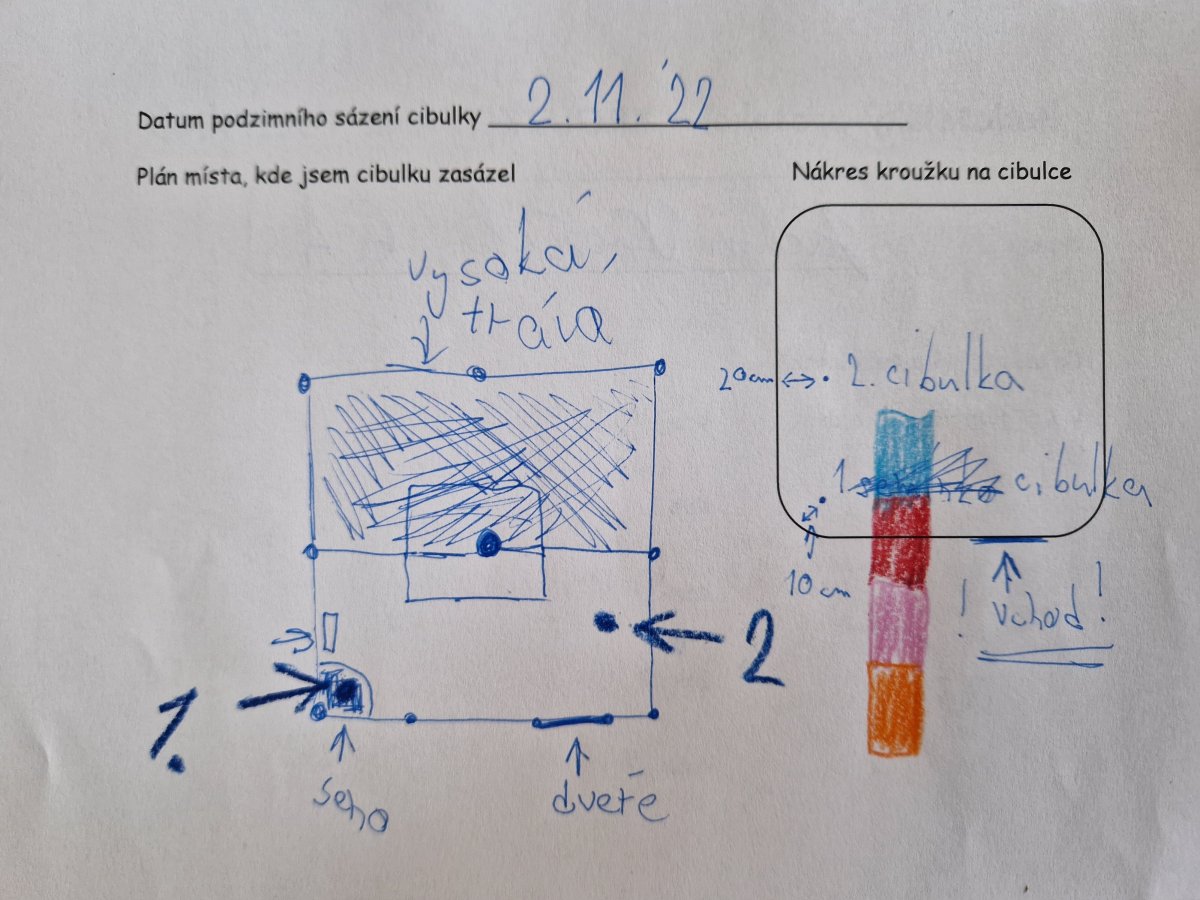 Datum podzimního sázení cibulky 2.11.'22
Plán místa, kde jsem cibulku zasázel
Nákres kroužku na cibulce
vysoká,
tráva
20cm
2. cibulka
1
cibulka
10 cm
! vchod !
2
1.
seno
dveře